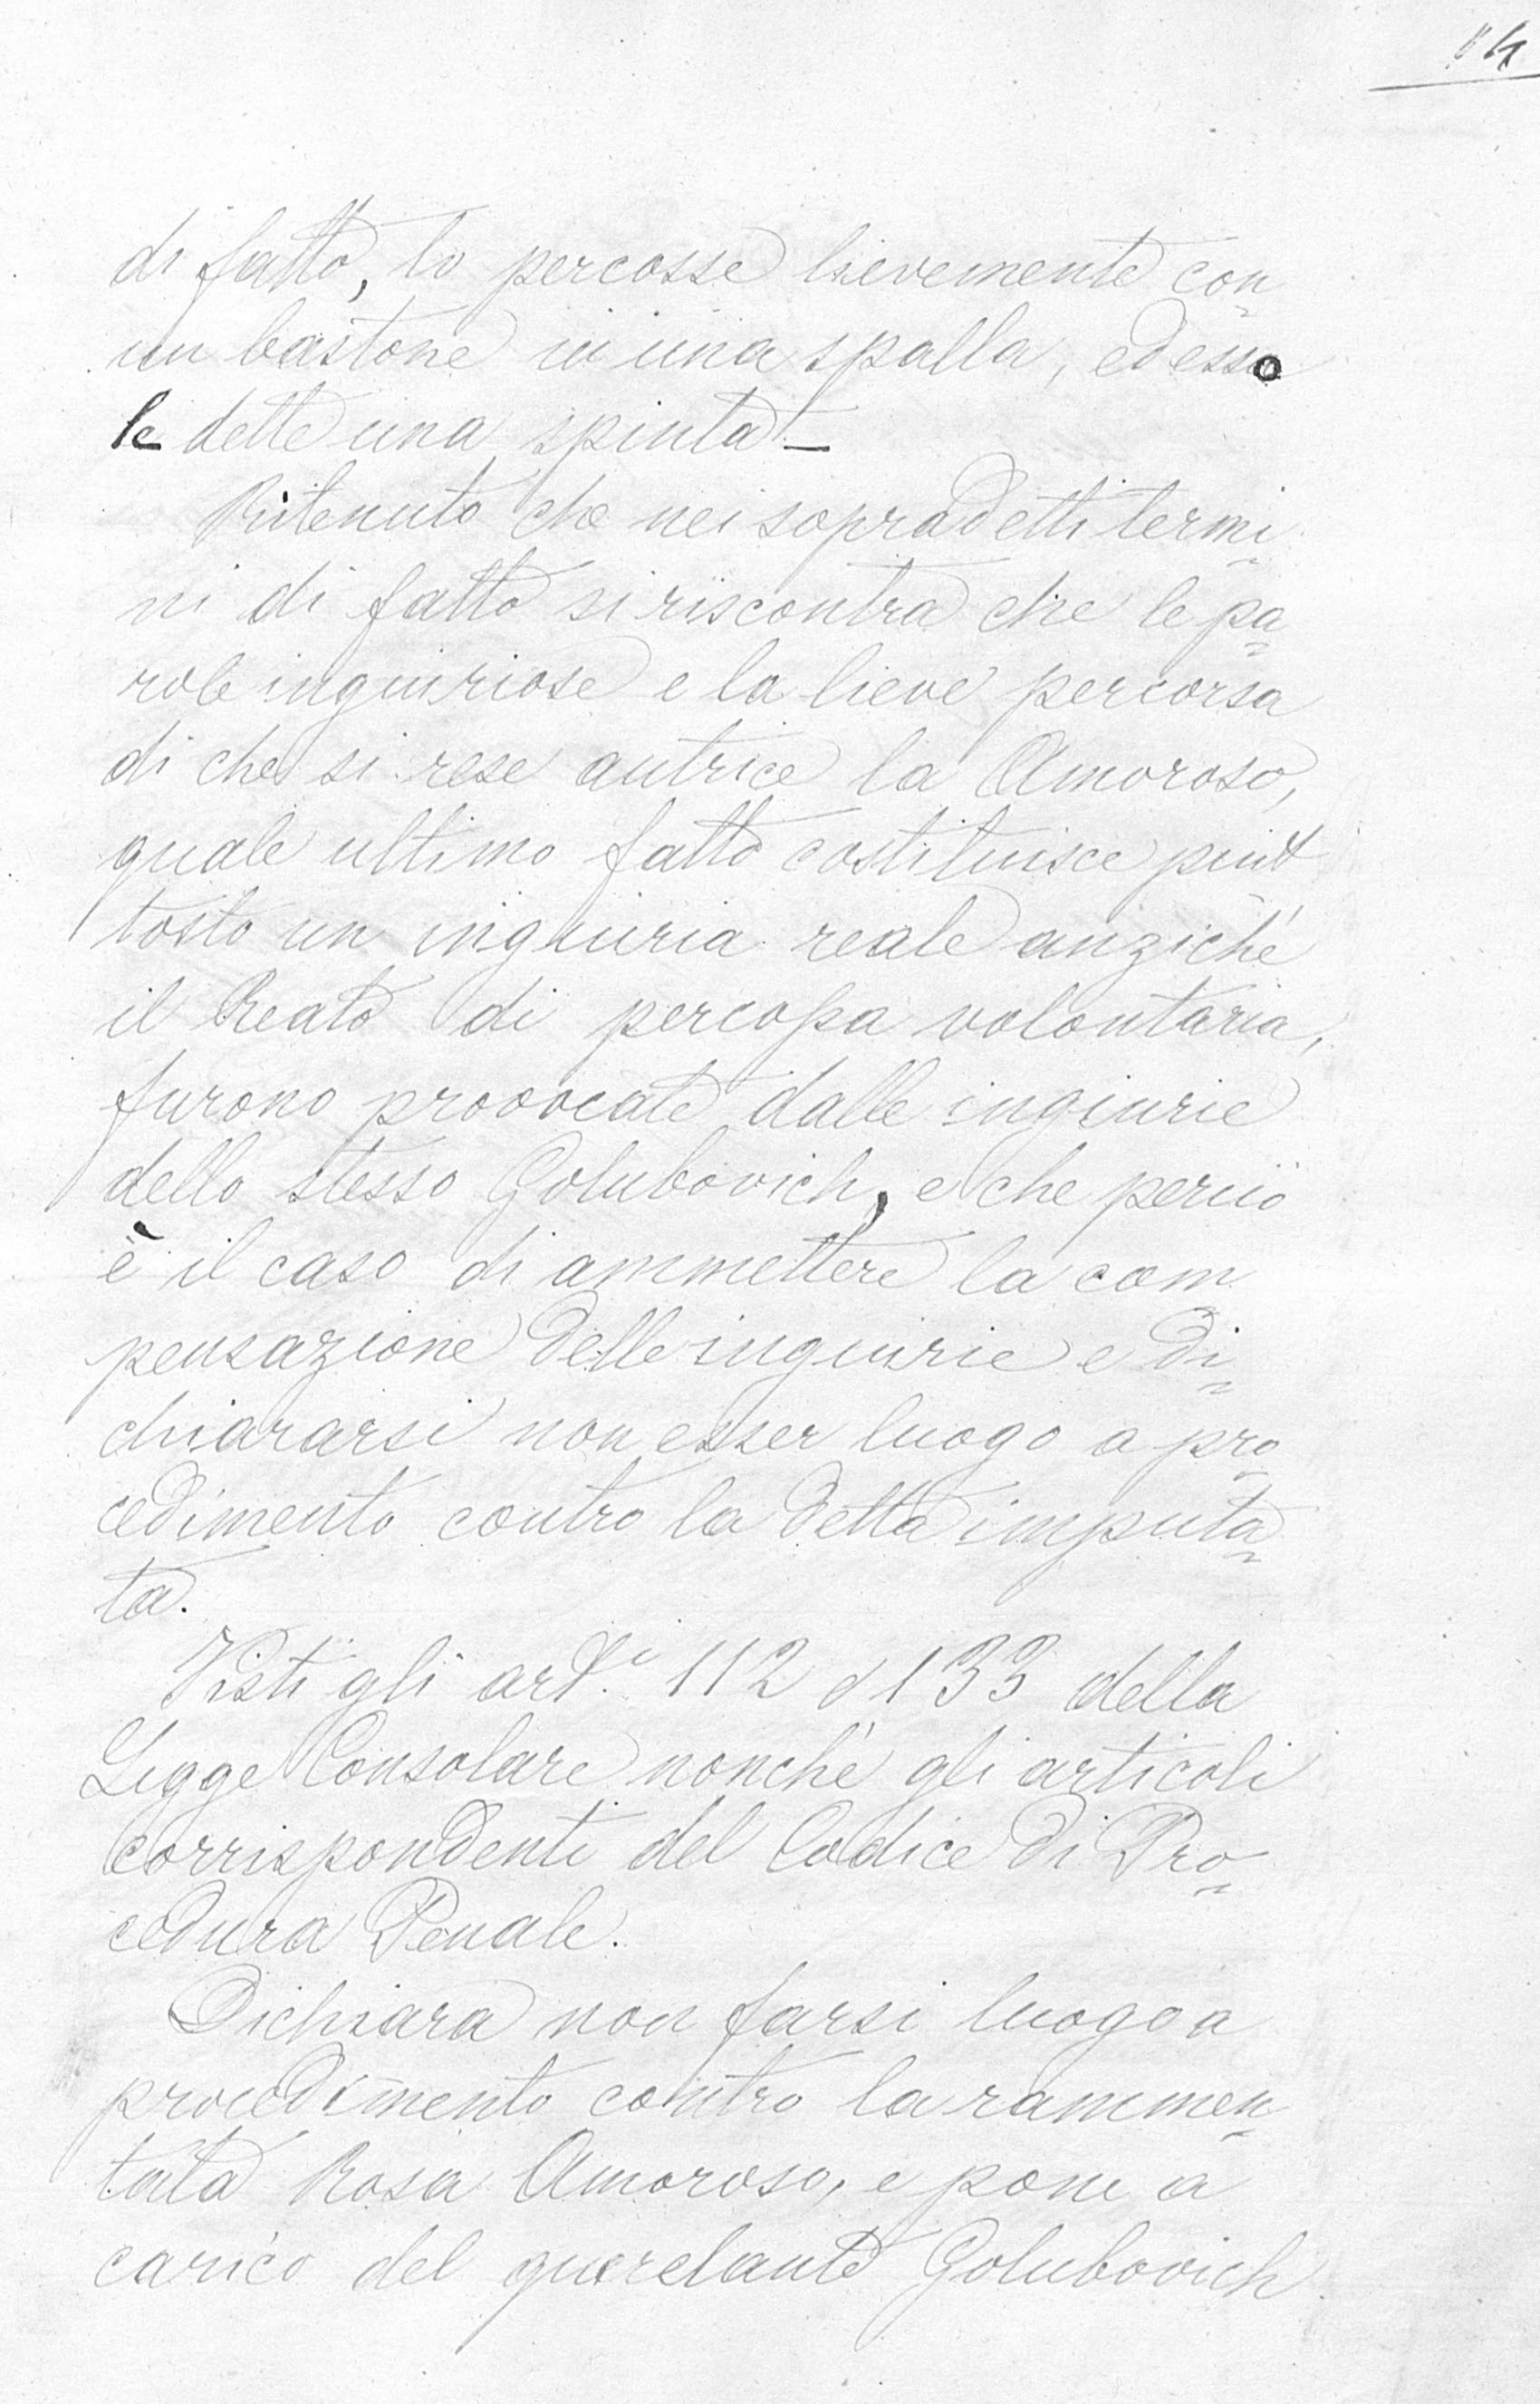 di fatto, lo percosse lievemente con
un bastone in una spalla, ed esso
le dette una spinta —
Ritenuto che nei sopradetti termi
ni di fatto si riscontra che le pa
role inguiriose e la lieve percorsa
di che si rese autrice la Amoroso,
quale ultimo fatto costituisce piut
tosto un inguiria reale anziché
il Reato di percossa volontaria,
furono provocate dalle ingiurie
dello stesso Golubovich, e che perciò
è il caso di ammettere la com
pensazione delle inguirie e di
chiararsi non esser luogo a pro
cedimento contro la detta imputa
ta.
Visti gli art.i 112 e 133 della
Legge Consolare nonché gli articoli
corrispondenti del Codice di Pro
cedura Penale.
Dichiara non farsi luogo a
procedimento contro la rammen
tata Rosa Amoroso, e pone a
carico del querelante Golubovich